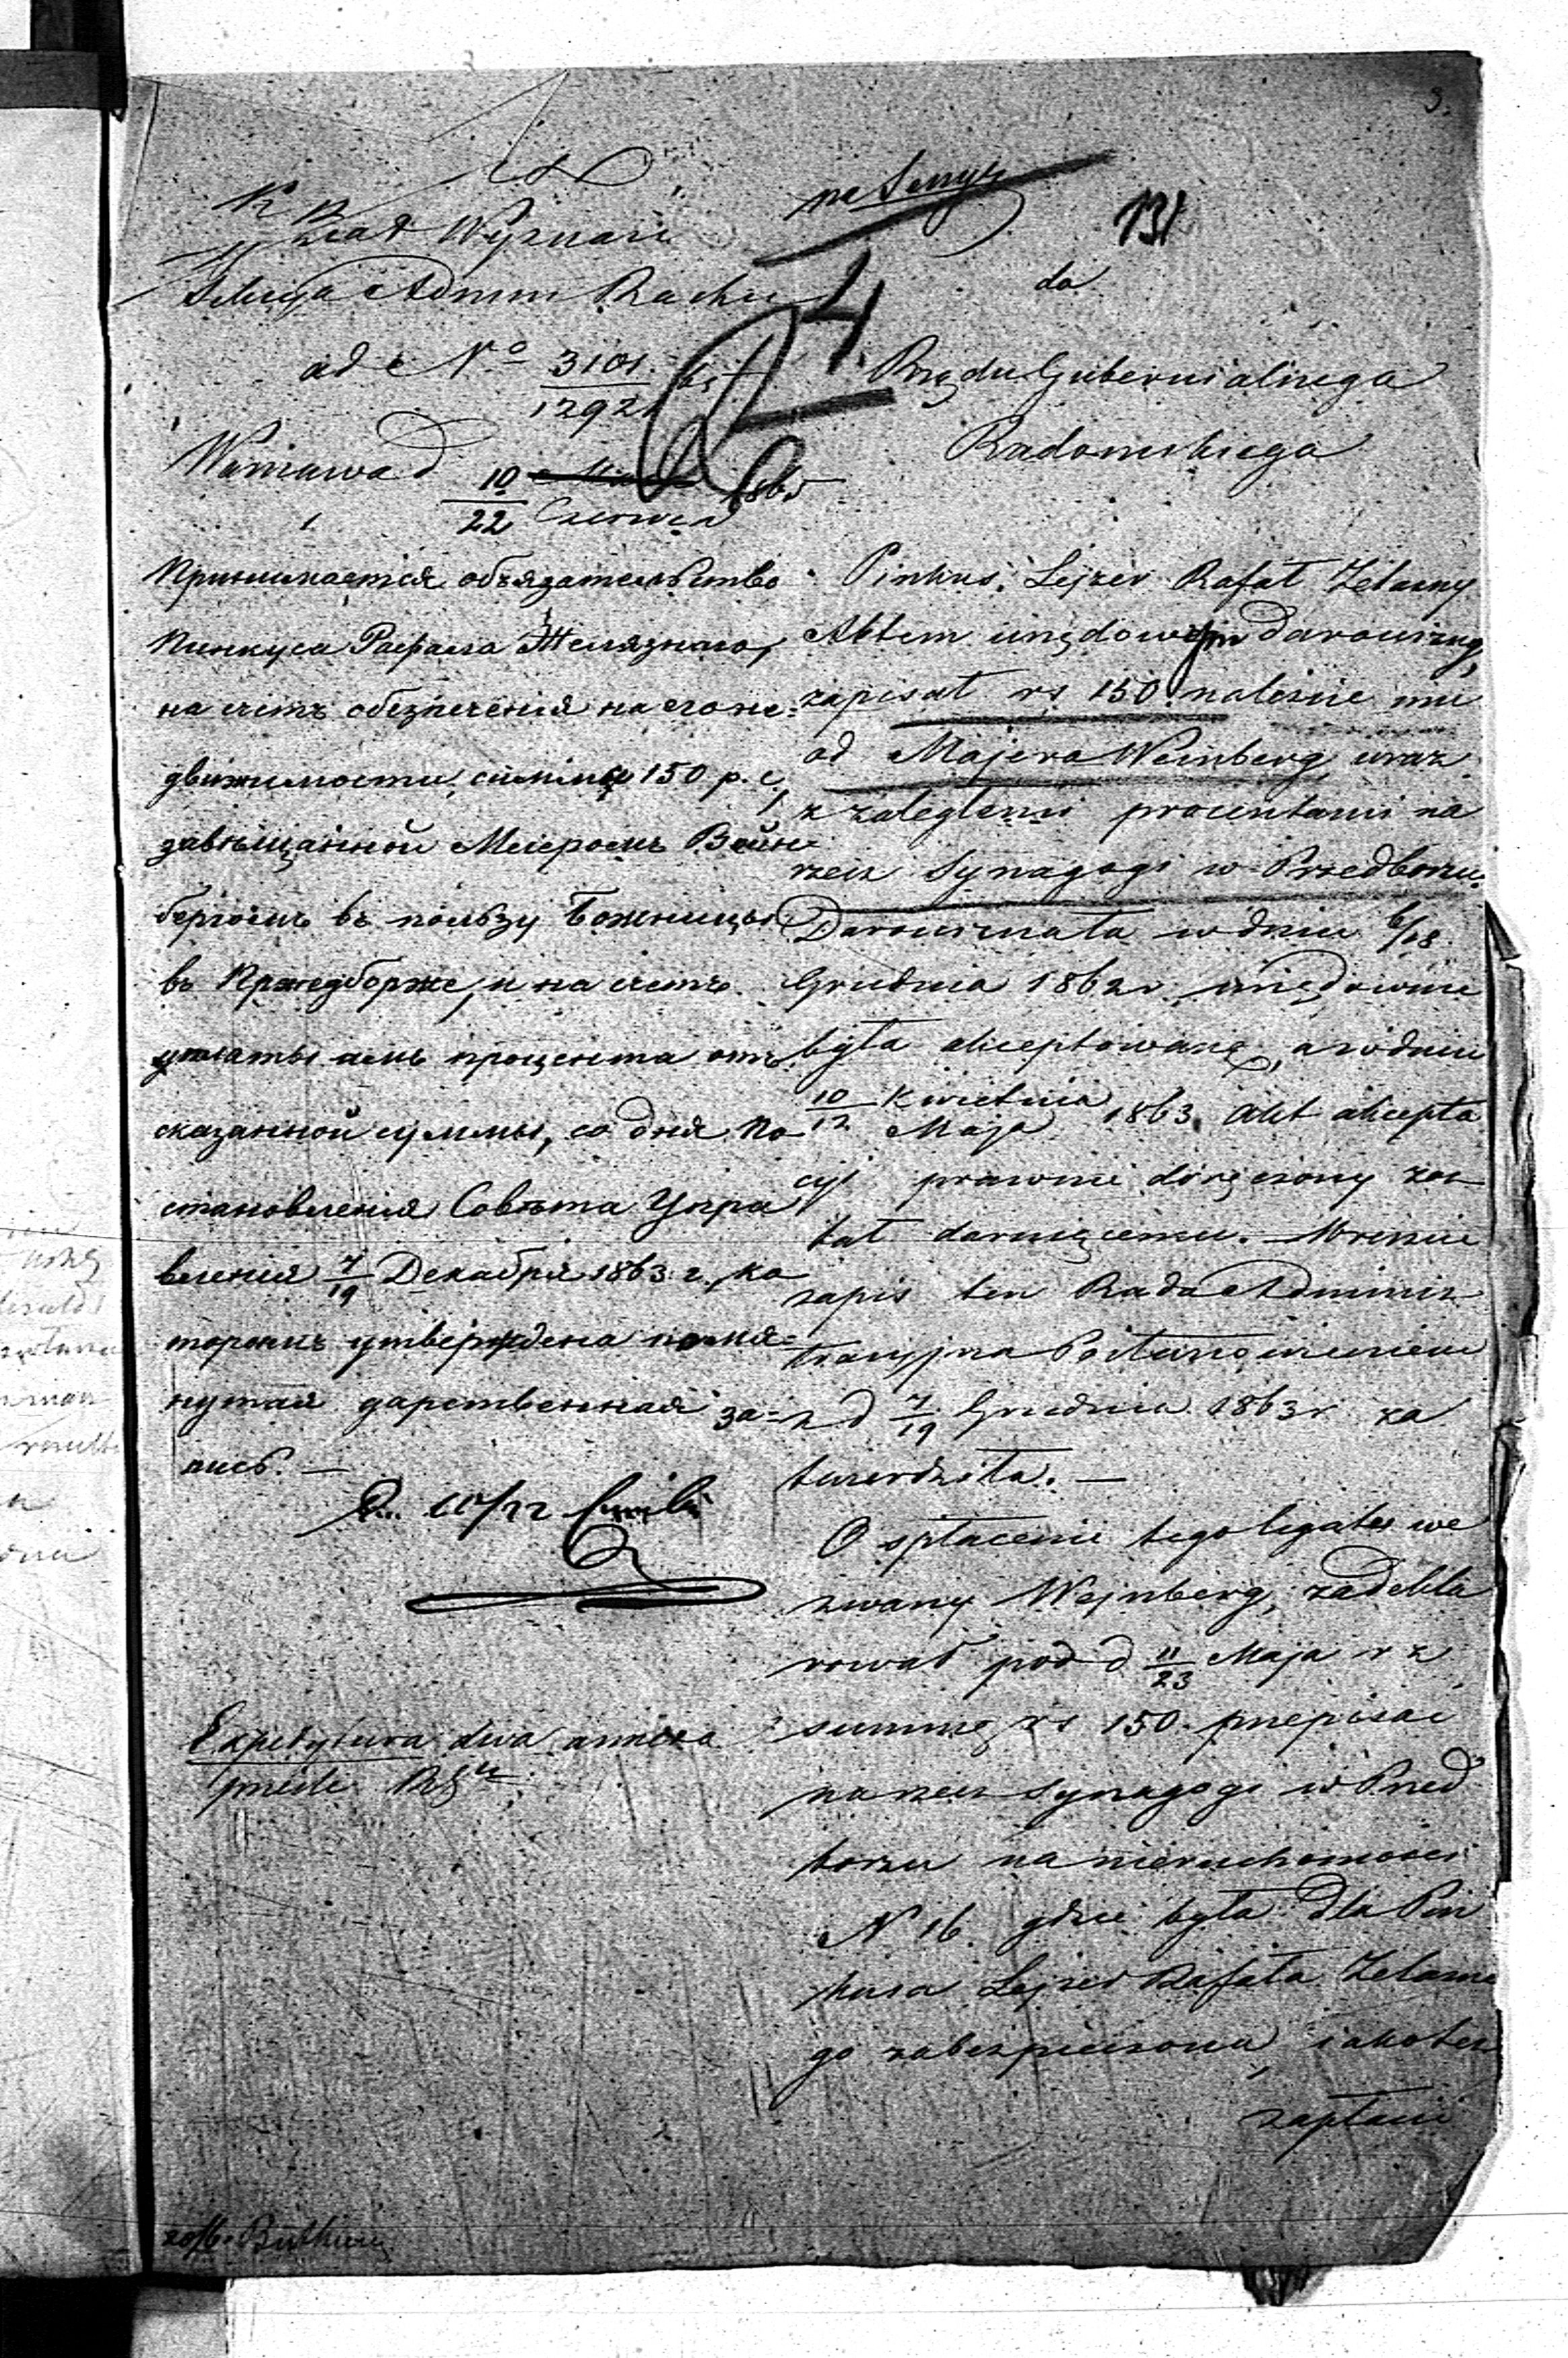 3.
131
K R
Wyznań
Sekcya Admin Rachu
ad No 3101/1292
Warszawa d 10/22 Czerwca 1865
do
Rządu Gubernialnego
Radomskiego
Принимается обязательство
Пинкуса Рафаела Желязнаго,
на счетъ обезпеченія на его не=
движимости, суммы 150 р. с.,
завѣщанной Меіеромъ Вейн=
бергомъ въ пользу Божницы
въ Пржедборже, и на счетъ
уплаты имъ процента отъ
сказанной суммы, со дня По
становленія Совѣта Упра
вленія 7/19 Декабря 1863 г., ко
торымъ утверждена помя=
нутая дарственная за=
пись. —
10/22
Expedytura dwa annexa
prześle
Pinkus, Lejzer Rafał Zelazny
Aktem urzędowym darowizny,
zapisał rs 150 należne mu
od Majera Weinberg, wraz
z zaległemi procentami na
rzecz Synagogi w Przedborzu.
Darowizna ta w dniu 6/18
Grudnia 1862 r urzędownie
była akceptowaną, a w dniu
10/12 Kwietnia/Maja 1863. Akt akcepta
cyi prawnie doręczony zos
tał darującemu. Wreszcie
zapis ten Rada Adminis
tracyjna Postanowieniem
z d 7/19 Grudnia 1863 r za
twierdziła. —
O spłacenie tego legatu we
zwany Wejnberg, zadekla
rował pod d 11/23 Maja r z
summę rs 150. przepisać
na rzecz synagogi w Przed
borzu na nieruchomości
N 16 gdzie była dla Pin
kusa Lejzer Rafała Zelazne
go zabezpieczona, jakoteż
zapłacić